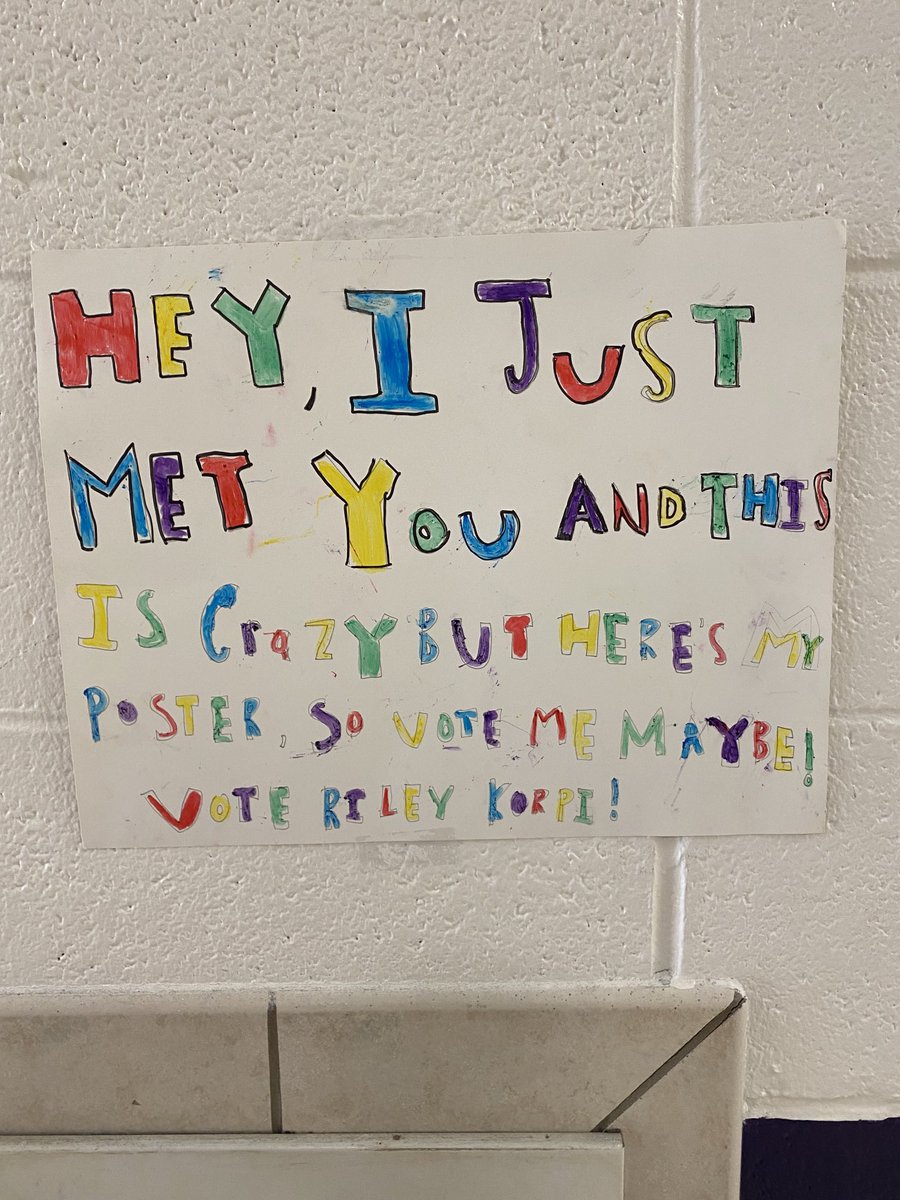 HEY, I JUST
MET YOU AND THIS
IS CrazY BUT HERE'S MY
POSTER, SO VOTE ME MAYBE!
VOTE RILEY KORPI!